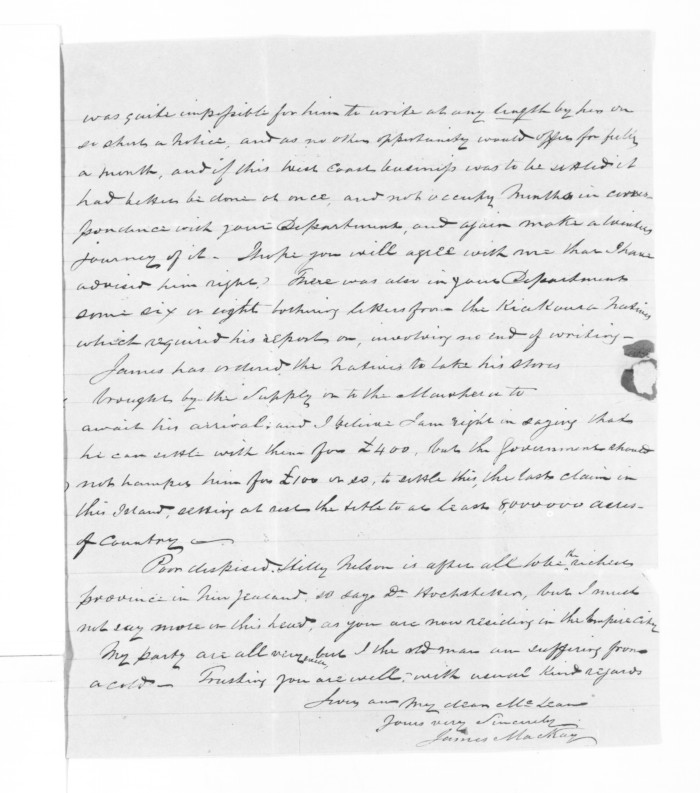 was quite impossible for him to write at any length by her on
so short a notice, and as no other opportunity would offer for fully
a month, and if this West Coast business was to be settled it
had better be done at once, and not occupy months in corres-
pondence with your Department, and again make a winters
journey of it - I hope you will agree with me that I have
advised him right? There was also in your Department
some six or eight bothering letters from the Kiakoura Natives
which required his report on, involving no end of writing -
James has ordered the Natives to take his stores
brought by the Supply on to the Mawhera to
await his arrival: and I believe I am right in saying that
he can settle with them for £400, but the Government should
not hamper him for £100 or so, to settle this, the last claim in
this Island, setting at rest the title to at least 8,000000 acres
of Country -
Poor dispised Hilly Nelson is after all to be the richest
province in New Zealand, so says Dr Hochstetter, but I must
not say more on this head, as you are now residing in the Empire City
My party are all very well, but I the old man am suffering from
a cold - Trusting you are well, with usual kind regards
I am my dear McLean
Yours very Sincerely
James Mackay